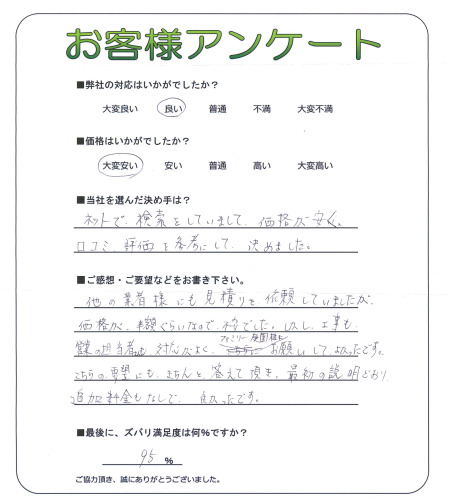 お客様アンケート
■弊社の対応はいかがでしたか？
大変良い 良い 普通 不満 大変不満
■価格はいかがでしたか？
大変安い 安い 普通 高い 大変高い
■当社を選んだ決め手は？
ネットで、検索をしていまして、価格が安く。
口コミ、評価を参考にして、決めました。
■ご感想・ご要望などをお書き下さい。
他の業者様にも見積りを依頼していましたが、
価格が、半額ぐらいなので、不安でした。しかし、工事も
営業の担当者も、対応がよく、ファミリー庭園様にお願いして、よかったです。
こちらの要望にも、きちんと答えて頂き、最初の説明どおり
追加料金もなしで、良かったです。
■最後に、ズバリ満足度は何%ですか？
95 %
ご協力頂き、誠にありがとうございました。